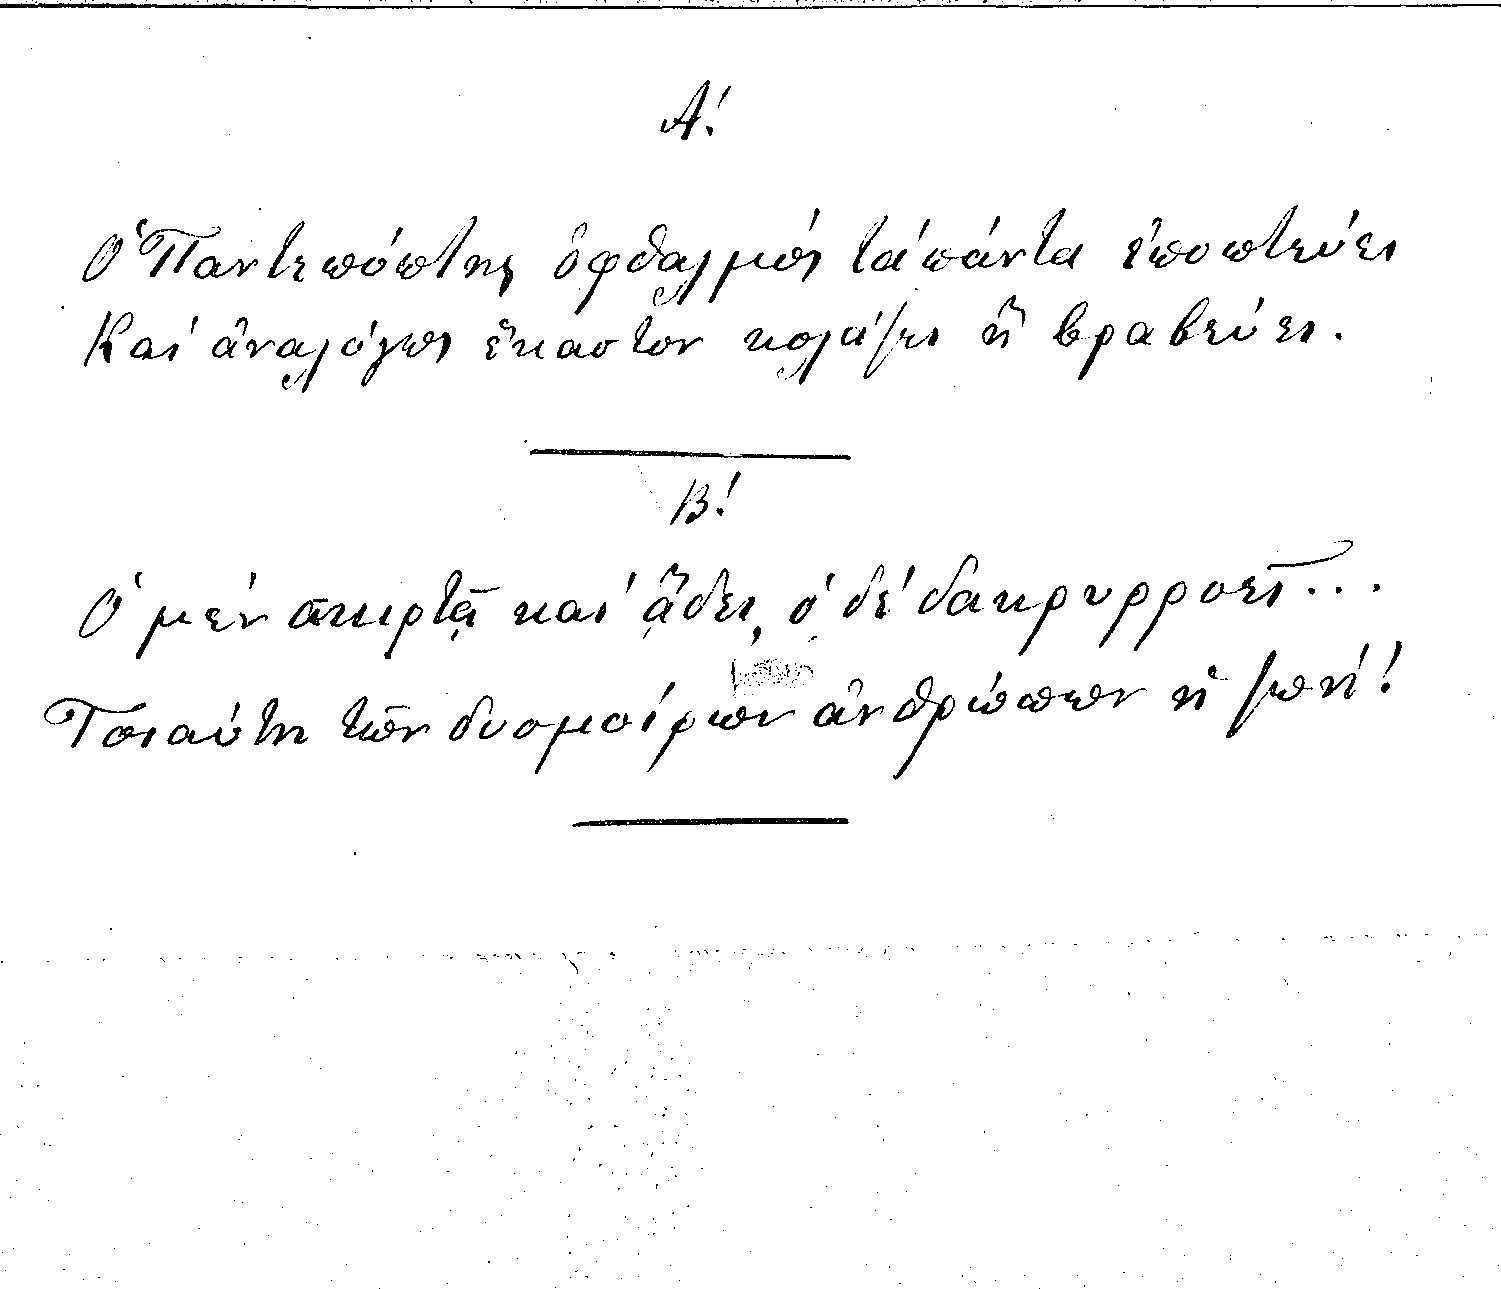 Α'.
Ὁ Παντεπόπτης ὀφθαλμός τά πάντα ἐποπτεύει
Καί ἀναλόγως ἕκαστον κολάζει ἤ βραβεύει.
Β'.
Ὁ μέν σκιρτᾷ καί ᾄδει, ὁ δέ δακρυρροεῖ...
Τοιαύτη τῶν δυσμοίρων ἀνθρώπων ἡ ζωή!